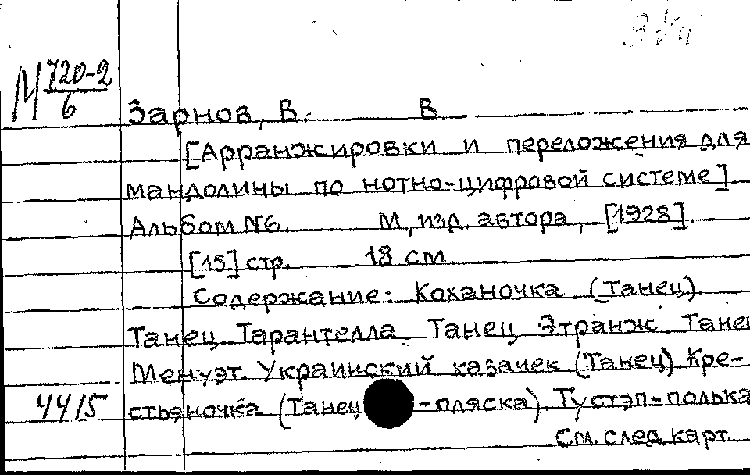 М 720-2
6
Зарнов, В. В
[Арранжировки и переложения для
мандолины по нотно-цифровой системе].
Альбом №6. М, изд. автора, [1928].
[15] стр. 18 см
Содержание: Коханочка (Танец).
Танец Тарантелла. Танец Этранж. Танец
Менуэт. Украинский казачек (Танец) Кре-
4415 стьяночка (Танец -пляска). Тустэп-полька
См. след карт